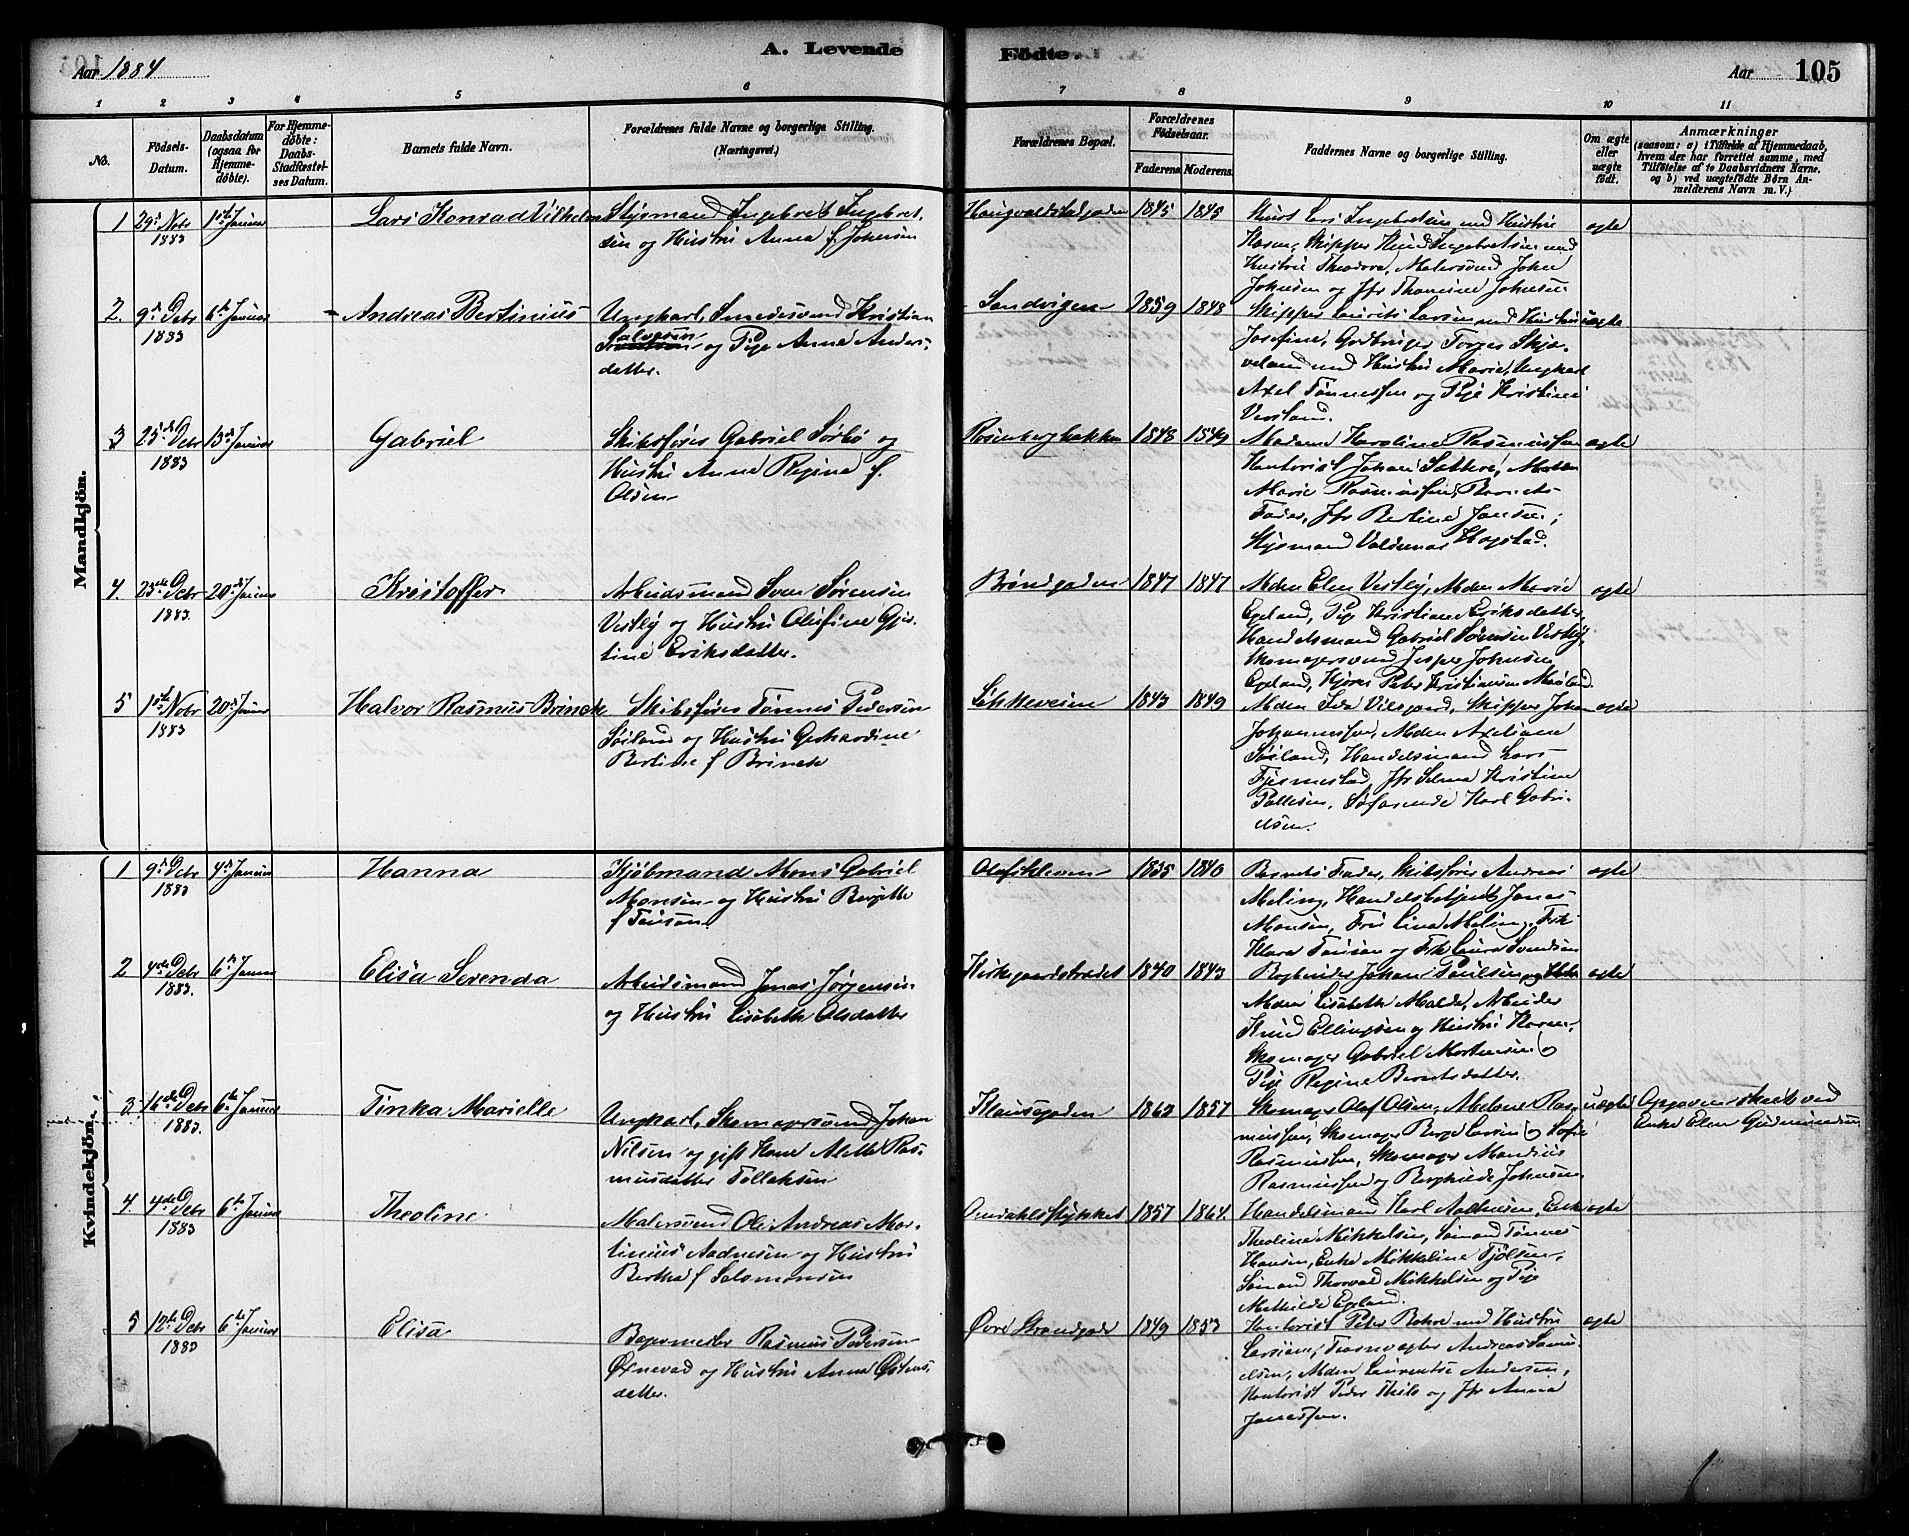 A. Levende
Fødte.
Aar 1884
Aar 105
1 2 3 4 5 6 7 8 9 10 11
No.
Födsels-
Datum.
Daabsdatum
(ogsaa for
Hjemme-
döbte).
For Hjemme-
döbte:
Daabs-
Stadfæstel-
ses Datum.
Barnets fulde Navn.
Forældrenes fulde Navne og borgerlige Stilling.
(Næringsvei.)
Forældrenes Bopæl.
Forældrenes
Födselsaar.
Faderens. Moderens.
Faddernes Navne og borgerlige Stilling.
Om ægte
eller
uægte
födt.
Anmærkninger
(saasom: a) i Tilfælde af Hjemmedaab,
hvem der har forrettet samme, med
Tilföielse af to Daabsvidners Navne.
og b) ved uægtefödte Börn An-
melderens Navn m. V.)
Mandkjön.
1 29 Nobr 1883 1 Januar Lars Konrad Vilhelm
Styrmand Ingebret Ingebret-
sen og Hustru Anna f. Johnsen
Haugvaldstadgaden 1845 1845
Lars Ingebretsen med Hustru
Skipper Knud Ingebretsen med
Hustru Theodora, Malersvend John
Johnsen og Jfr Thomine Johnsen
ægte
2. 9 Debr 1883 6te Januar Andreas Bertinius
Ungkarl, Smedesvend Kristian
Halvorsen og Pige Anne Anders-
datter.
Sandvigen 1859 1848
Skipper Laurits Larsen med Hustru
Josefine, Gaardbruger Torger Skjæ-
veland med Hustru Marie, Ungkarl
Axel Tønnessen og Pige Kristine
uægte
3 25 Debr 1883 13 Januar Gabriel
Skibsfører Gabriel Sørbø og
Hustru Anne Regine f.
Olsen
Rosenbergbakken 1848 1849
Madame Karoline Rasmussen
Kontorist Johan
Marie Rasmussen, Barnets
Fader, Jfr Bertine Jansen;
Styrmand Valdemar Hogstad.
ægte
4. 23de Debr 1883. 20de Januar Kristoffer
Arbeidsmand Sven Sørensen
Vestly og Hustru Olefine Gjer-
tine Eriksdatter.
Brøndgaden 1847 1847
Mdm Elen Vestly, Mdm Marie
Egeland, Pige Kristiane Eriksdatter,
Handelsmand Gabriel Sørensen Vestly,
Skomagersvend Jesper Johnsen
Egeland, Peter Kristiansen
ægte
5 1ste Nobr 1883 20 Januar Halvor Rasmus Brinck
Skibsfører Tønnes Pedersen
Soiland og Hustru Gerhardine
Bertine f Brinck
Løkkeveien 1843 1849
Skipper John
Johannessen, Mdm Axeliane
Soiland, Handelsmand Lars
Fjermestad, Jfr Selma Kristine
Pallesen, Søfarende Karl Gabri-
elsen.
ægte
Kvindekjön.
1 9 Debr 1883 4 Januar Hanna
Kjøbmand Mons Gabriel
Monsen og Hustru Birgitte
f Tausan
Olafskleven 1835 1840
Barnets Fader, Skibsfører Andreas
Meling, Handelsbetjent Jonas
Monsen, Fru Lina Meling, Frk
Klara Tausan og Frk Laura Svendsen
ægte
2 4de Debr 1883. 6te Januar Elisa Serenda
Arbeidsmand Jonas Jørgensen
og Hustru Lisabeth Olsdatter
Kirkegaardstrædet 1840 1843
Bogbinder Johan Paulsen og
Mdm Lisabeth Malde, Arbeider
Knud Ellingsen og Hustru Karen,
Skomager Gabriel Mortensen og
Pige Regine Berntsdatter.
ægte
3. 16de Debr 1883. 6te Januar Tinka Marielle
Ungkarl, Skomagersvend Johan
Nilsen og gift Kone Mette Ras-
musdatter Tollaksen
Klausgaden 1862 1857
Skomager Olaf Olsen, Malene Ras-
mussen, Skomager Børge Larsen og Sofie
Rasmussen, Skomager Mandius
Rasmussen og Berghilde Johnsen
uægte
Opgaven skeet ved
Enke Elen Gudmundsen
4 4de Debr 1883 6te Januar Theoline
Malersvend Ole Andreas Mar-
tinius Aadnesen og Hustru
Bertha f Salomonsen
Omdahlsstykket 1857 1864.
Handelsmand Karl Aadnesen, Enke
Theoline Mikkelsen, Sømand Tønnes
Hansen, Enke Mikkeline
Sømand Thorvald Mikkelsen og Pige
Mathilde Egeland.
ægte
5 12te Debr 1883 6te Januar Elisa
Bagermester Rasmus Pedersen
Ørnevad og Hustru Anna Østens-
datter.
Øvre Strandgade 1849 1853
Kontorist Peter med Hustru
Andreas Samu-
elsen, Mdm Laurentse Andersen,
Kontorist Peder og Jfr Anna
Jonassen.
ægte